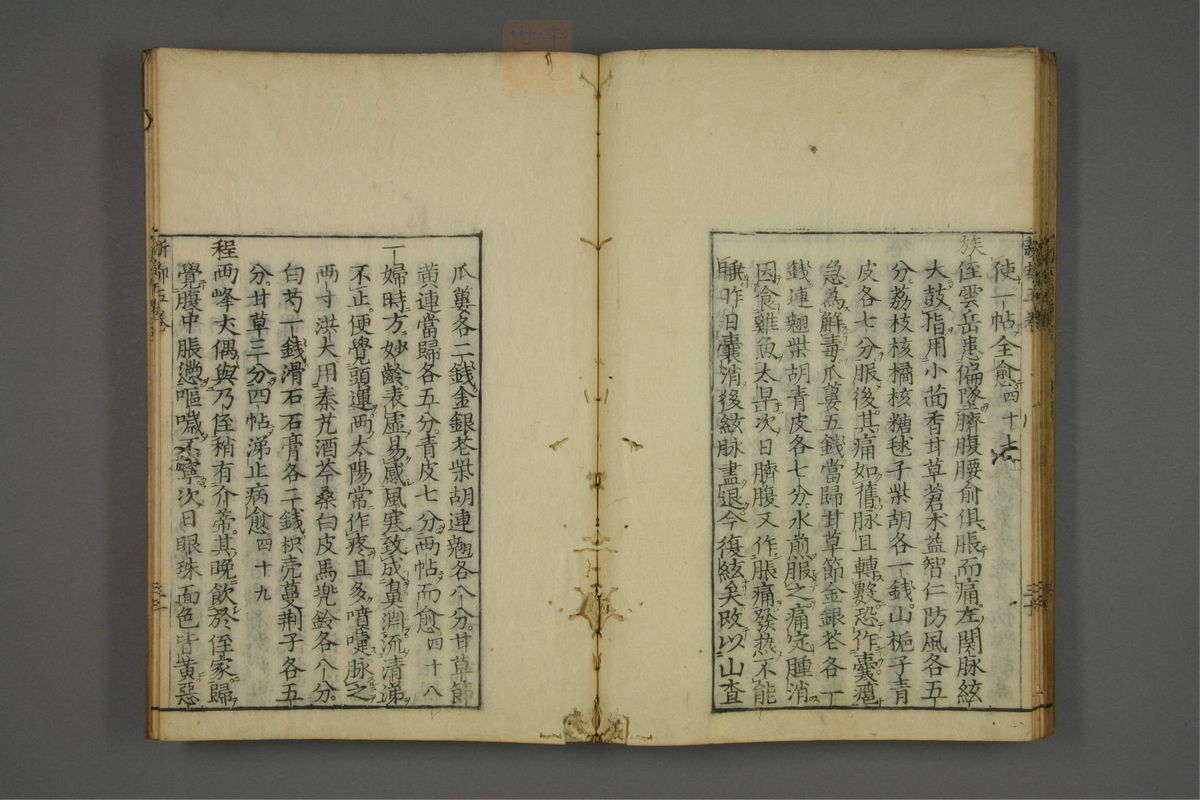 使一帖全愈四十七
族侄雲岳患偏墜臍腹腰俞俱脹而痛左關脉絃
大鼓指用小茴香甘草蒼术益智仁防風各五
分荔枝核橘核糖毬子柴胡各一錢山梔子青
皮各七分服後其痛如舊脉且轉數恐作囊癰
急為解毒瓜蔞五錢當歸甘草節金銀花各一
錢連翹柴胡青皮各七分水煎服之痛定腫消
因食雞魚太早次日臍腹又作脹痛發熱不能
睡昨日囊消後絃脉盡退今復絃矣改以山查
瓜蔞各二錢金銀花柴胡連翹各八分甘草節
黄連當歸各五分青皮七分兩帖而愈四十八
一婦時方妙齡表虛易感風寒致成鼻淵流清涕
不止便覺頭運兩太陽常作疼且多噴嚏脉之
兩寸洪大用秦艽酒芩桑白皮馬兜鈴各八分
白芍一錢滑石石膏各二錢枳壳蔓荆子各五
分甘草三分四帖涕止病愈四十九
程兩峰丈偶與乃侄稍有介蒂其晚飲於侄家歸
覺腹中脹懣嘔噦不寧次日眼珠面色皆黄惡